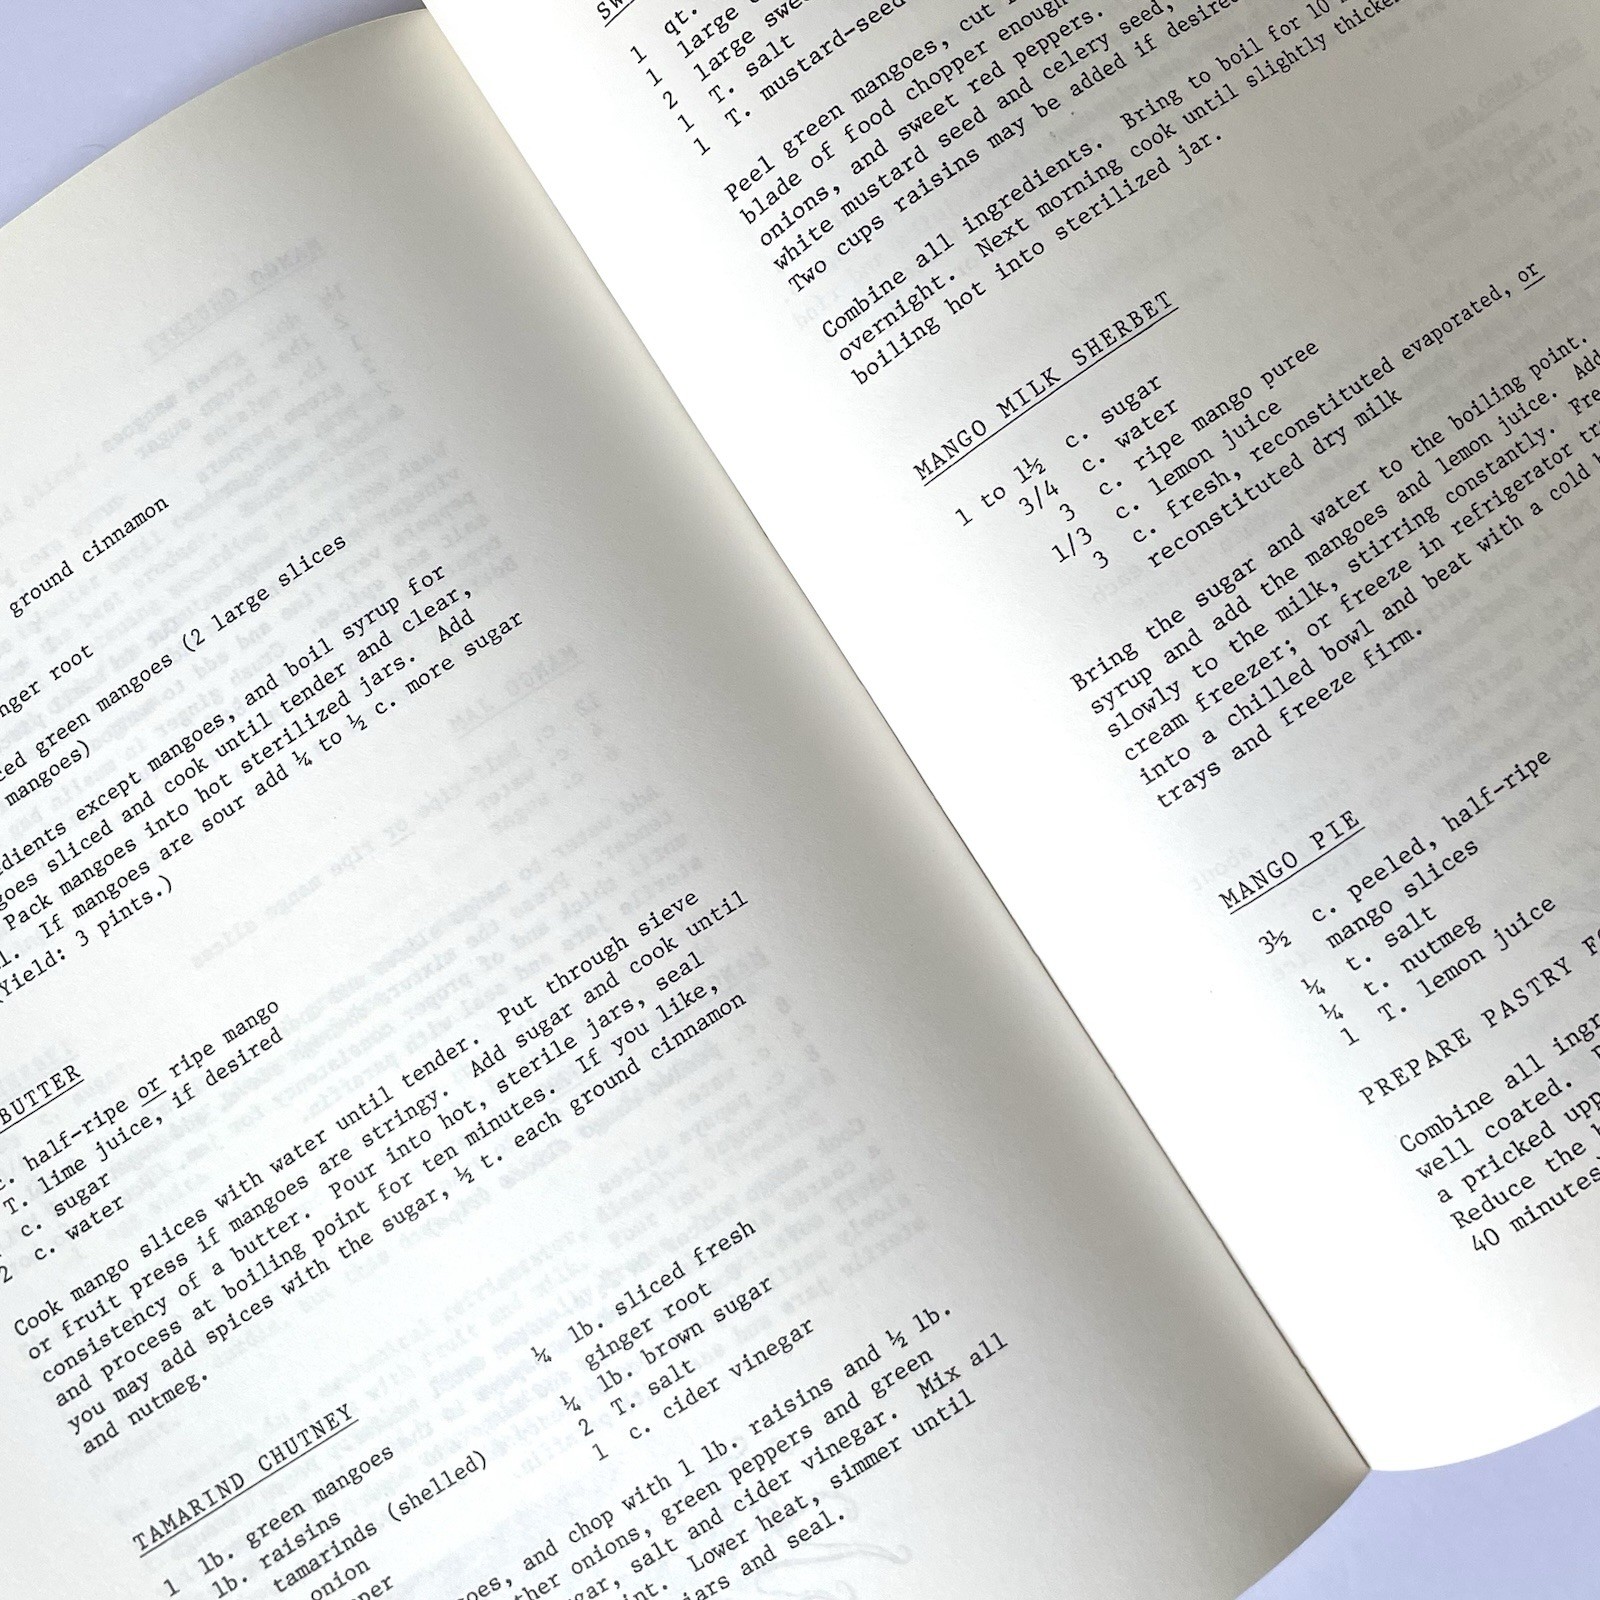 ground cinnamon
root
green mangoes (2 large slices
mangoes)
except mangoes, and boil syrup for
sliced and cook until tender and clear,
Pack mangoes into hot sterilized jars. Add
If mangoes are sour add ¼ to ½ c. more sugar
(Yield: 3 pints.)
BUTTER
half-ripe or ripe mango
T. lime juice, if desired
c. sugar
2 c. water
Cook mango slices with water until tender. Put through sieve
or fruit press if mangoes are stringy. Add sugar and cook until
consistency of a butter. Pour into hot, sterile jars, seal
and process at boiling point for ten minutes. If you like,
you may add spices with the sugar, ½ t. each ground cinnamon
and nutmeg.
TAMARIND CHUTNEY
1 lb. green mangoes
lb. raisins
tamarinds (shelled)
onion
¼ lb. sliced fresh
ginger root
¼ lb. brown sugar
2 T. salt
1 c. cider vinegar
and chop with 1 lb. raisins and ½ lb.
onions, green peppers and green
salt and cider vinegar. Mix all
Lower heat, simmer until
jars and seal.
1 qt.
1 large
2 large
1 T. salt
1 T. mustard-seed
Peel green mangoes, cut
blade of food chopper enough
onions, and sweet red peppers.
white mustard seed and celery seed,
Two cups raisins may be added if desired
Combine all ingredients. Bring to boil for 10
overnight. Next morning cook until slightly
boiling hot into sterilized jar.
MANGO MILK SHERBET
1 to 1½ c. sugar
3/4 c. water
3 c. ripe mango puree
1/3 c. lemon juice
3 c. fresh, reconstituted evaporated, or
reconstituted dry milk
Bring the sugar and water to the boiling point.
syrup and add the mangoes and lemon juice. Add
slowly to the milk, stirring constantly.
cream freezer; or freeze in refrigerator
into a chilled bowl and beat with a cold
trays and freeze firm.
MANGO PIE
3½ c. peeled, half-ripe
mango slices
¼ t. salt
¼ t. nutmeg
1 T. lemon juice
PREPARE PASTRY
Combine all
well coated.
a pricked
Reduce the
40 minutes